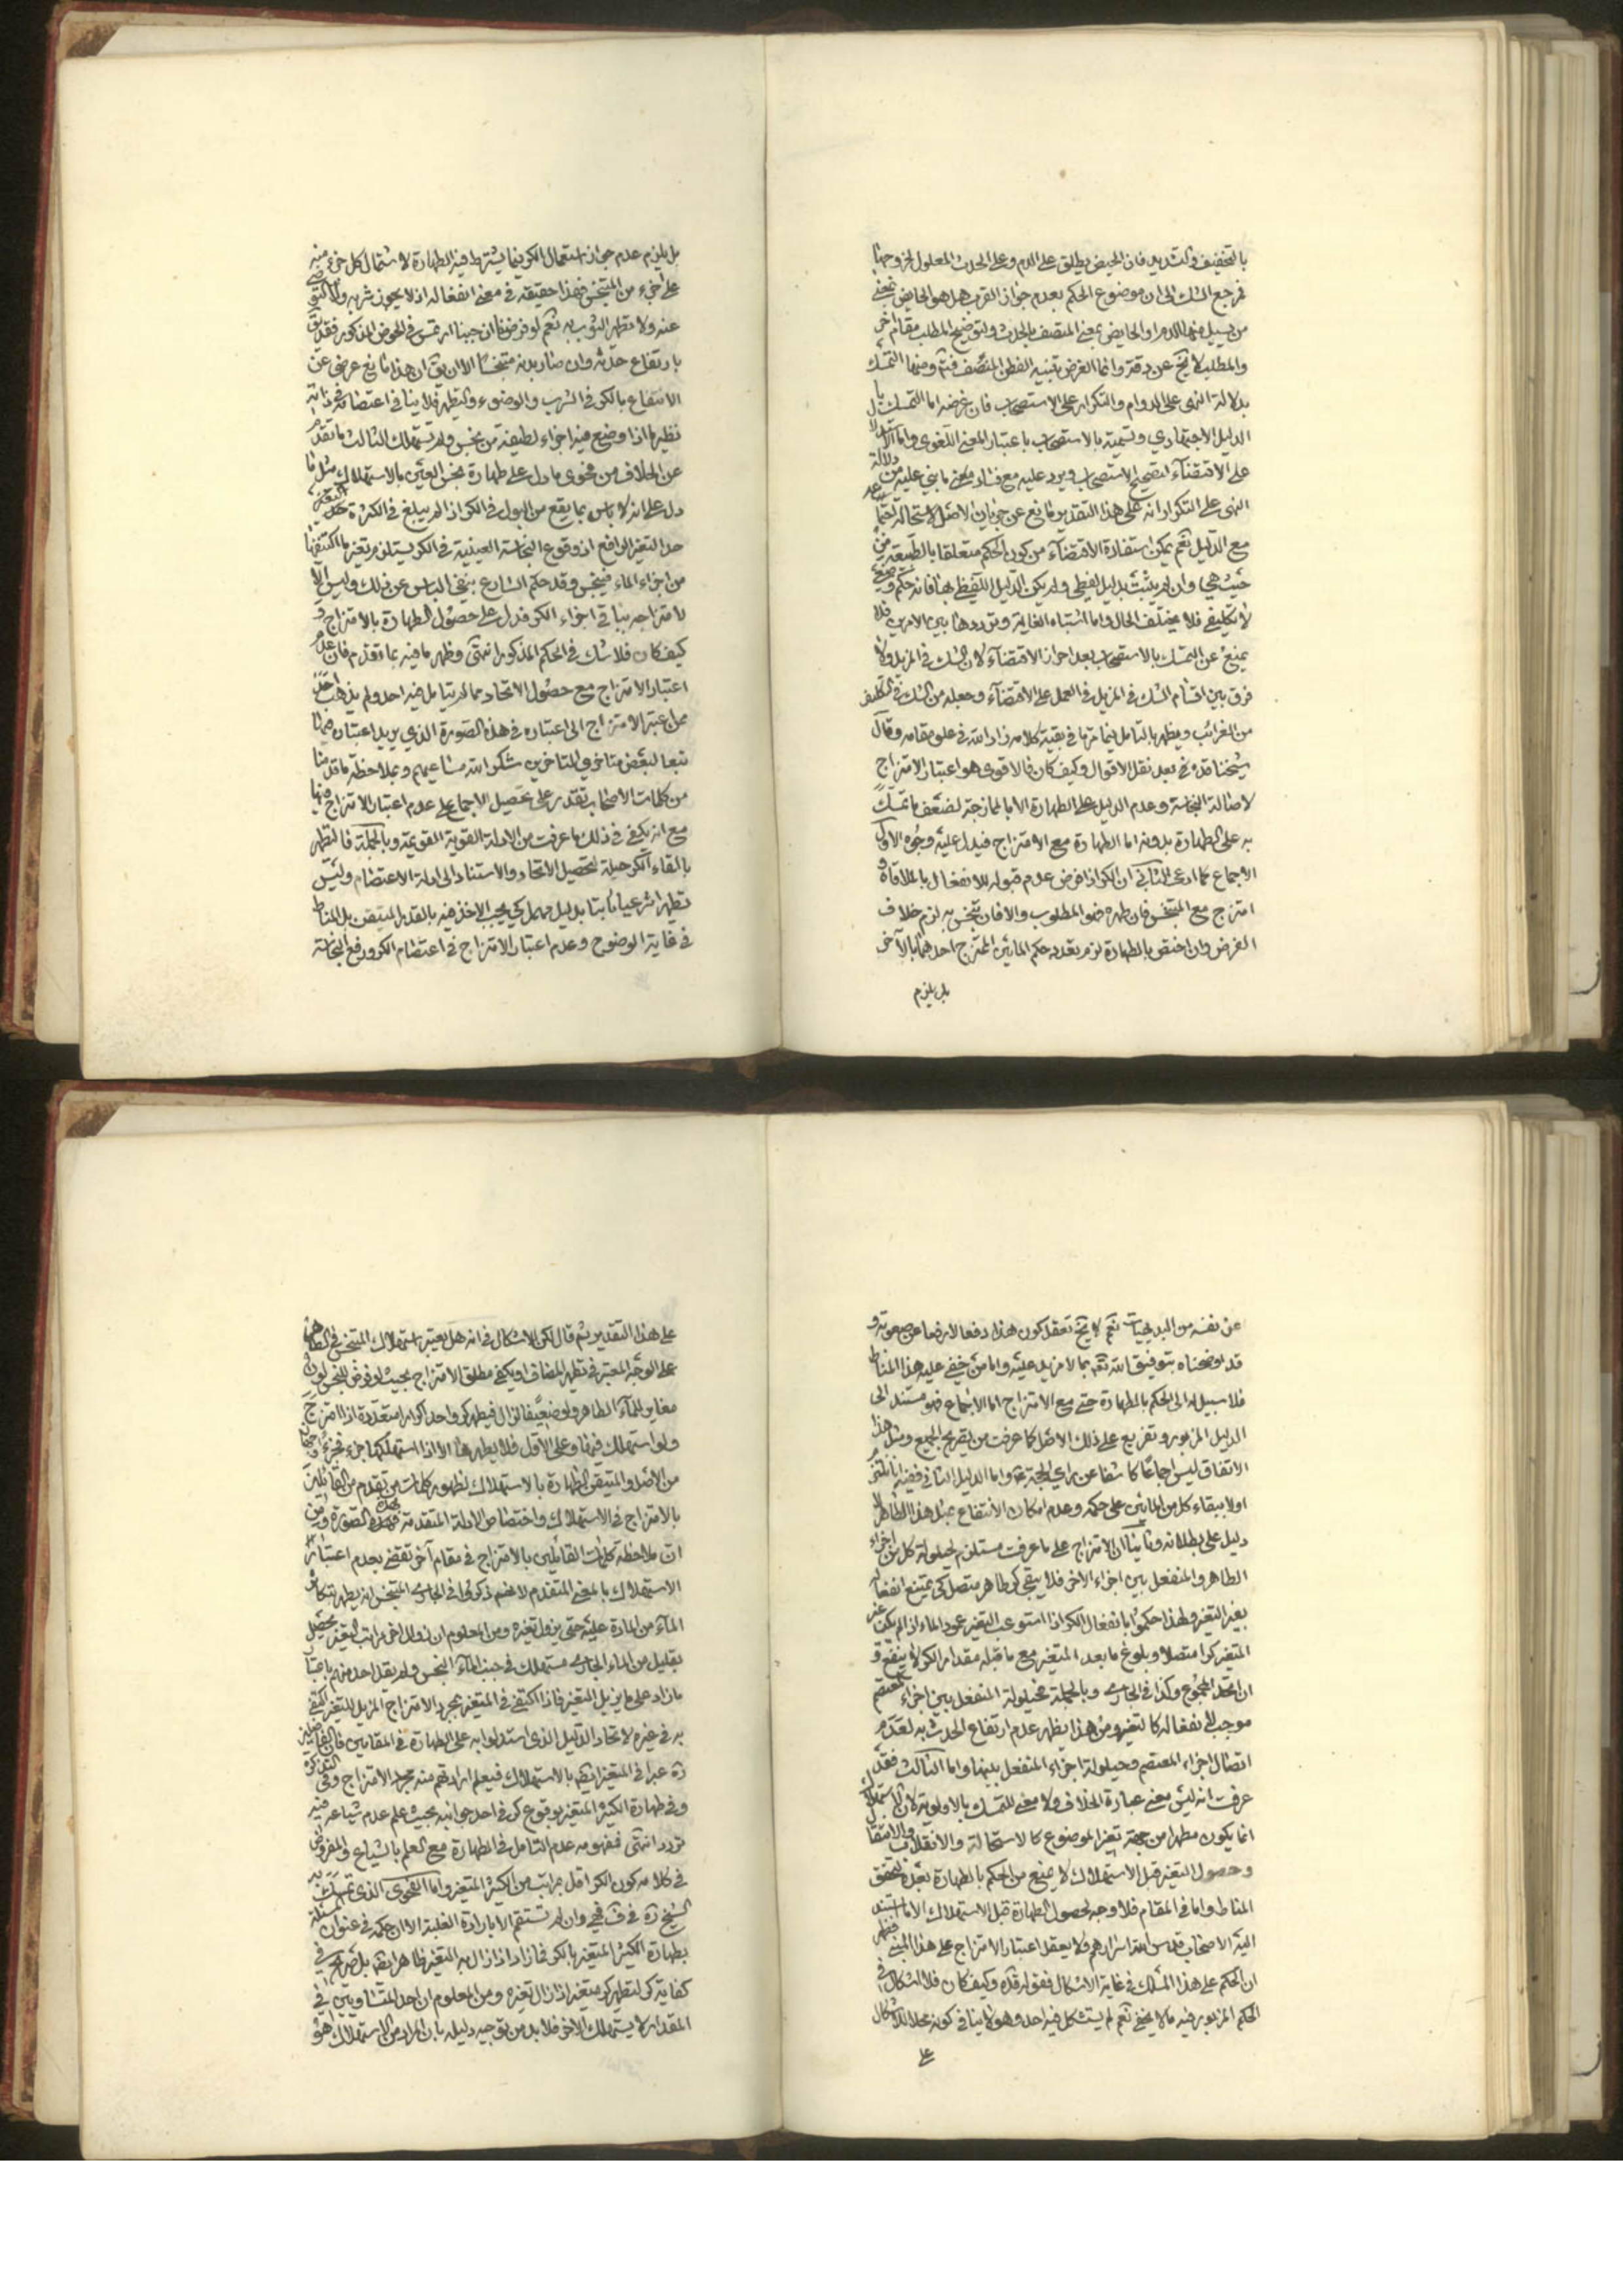 بالتخفيف والتشديد فان الحيض يطلق على الدم وعلى الحدث المعلول لخروجها
فمرجع الشك الى ان موضوع الحكم بعدم جواز القرب هل هو الحايض بمعنى
من يسيل منها الدم او الحايض بمعنى المتصف بالحدث ولتوضيح المطلب مقام آخر
والمطلب لا يخ عن دقة وانما الغرض تنبيه الفطن المنصف فتم ومنها التمسك
بدلالة النهى على الدوام والتكرار على الاستصحاب فان غرضه اما التمسك با
الدليل الاجتهادي وتسمية بالاستصحاب باعتبار المعنى اللغوى واما
على الاقتضآء لتصحيح الاستصحاب ويرد عليه مع فساد ما بنى عليه من دلالة
النهى على التكرار انه على هذا التقدير مانع عن جريان الاصل لاستحالة
مع الدليل نعم يمكن استفادة الاقتضآء من كون الحكم متعلقا بالطبيعة من
حيث هى وان لم يثبت بدليل لفظى ولم يكن الدليل اللفظى بها فانه حكم وضعى
لا تكليفى فلا يختلف الحال واما اشتباه الغاية وترددها بين الامرين فلا
يمنع عن التمسك بالاستصحاب بعد احراز الاقتضآء لان الشك فى المزيل ولا
فرق بين اقسام الشك فى المزيل فى العمل على الاقتضآء وجعله من الشك فى التكليف
من الغرائب ويظهر بالتامل فيما مر ما فى بقية كلامه زاد الله فى علو مقامه وقال
شيخنا قده فى بعد نقل الاقوال وكيف كان فالاقوى هو اعتبار الامتزاج
لاصالة النجاسة وعدم الدليل على الطهارة الا بالممازجة لضعف ما تمسك
به على الطهارة بدونه اما الطهارة مع الامتزاج فيدل عليه وجوه الاول
الاجماع كما ادعى الثانى ان الكر اذا فرض عدم قبوله للانفعال بالملاقاة و
امتزج مع المتنجس فان طهره فهو المطلوب والا فان تنجس به لزم خلاف
الفرض وان اختص بالطهارة لزم تعدد حكم المائين الممتزج احدهما بالآخر
بل يلزم
بل يلزم عدم جواز استعمال الكر فيما يشترط فيه الطهارة لاشتمال كل جزء منه
على اجزء من المتنجس فهذا حقيقة فى معنى انفعاله اذ لا يجوز شربه ولا التوضى
عنه ولا تطهر الثوب به نعم لو فرضنا ان جنبا ارتمس فى الحوض المذكور فقد يق
بارتفاع حدثه وان صار بدنه متنجسًا الا ان يق ان هذا مانع عرضى عن
الانتفاع بالكر فى الشرب والوضوء والتطهر فلا ينافى اعتصامه فى ذاته
نظير ما اذا وضع فيه اجزاء لطيفة من نجس ولم تستهلك الثالث ما تقدم
عن الخلاف من فحوى ما دل على طهارة نجس العين بالاستهلاك مثل ما
دل على انه لا باس بما يقع من البول فى الكر اذا لم يبلغ فى الكثرة
حد التغير الرافع اذ وقوع النجاسة العينية فى الكر يستلزم تغير ما اكتنفها
من اجزاء الماء فينجس وقد حكم الشارع بنفى الباس عن ذلك وليس الا
لامتزاجه بباقى اجزاء الكر فدل على حصول الطهارة بالامتزاج و
كيف كان فلا شك فى الحكم المذكور انتهى وظهر ما فيه بما تقدم فان عدم
اعتبار الامتزاج مع حصول الاتحاد مما لم يتامل فيه احد ولم يذهب احد
ممن اعتبر الامتزاج الى اعتباره فى هذه الصورة الذي يريد اعتباره
تبعا لبعض متاخرى المتاخرين شكر الله مساعيهم وبملاحظة ما قدمنا
من كلمات الاصحاب تقدر على تحصيل الاجماع على عدم اعتبار الامتزاج
مع انه يكفى فى ذلك ما عرفت من الادلة القوية القويمة وبالجملة فالتطهر
بالقاء الكر حيلة لتحصيل الاتحاد والاستناد الى ادلة الاعتصام وليس
تطهيرا شرعيا ثابتا بدليل مهمل كى يجب الاخذ فيه بالقدر المتيقن بل المناط
فى غاية الوضوح وعدم اعتبار الامتزاج فى اعتصام الكر ورفع النجاسة
عن نفسه من البديهيات نعم لا يخ تعقل كون هذا دفعا لا رفعا عن صعوبة و
قد اوضحناه بتوفيق الله تعالى بما لا مزيد عليه واما من خفى عليه هذا المناط
فلا سبيل له الى الحكم بالطهارة حتى مع الامتزاج اما الاجماع فهو مستند الى
الدليل المزبور وتفريع على ذلك الاصل كما عرفت من تصريح الجميع ومثل هذا
الاتفاق ليس اجماعًا كاشفا عن راى الحجة واما الدليل الثانى ففيه انا نلتزم
اولا ببقاء كل من المائين على حكمه وعدم امكان الانتفاع بمثل هذا الطاهر لا
دليل على بطلانه وثانيًا ان الامتزاج على ما عرفت مستلزم لحيلولة كل من اجزاء
الطاهر والمنفعل بين اجزاء الاخر فلا يبقى كر طاهر متصل كى يمتنع انفعاله
بغير التغير ولهذا حكموا بانفعال الكر اذا استوعب التغير عود الماء اذا لم يكن غير
المتغير كرا متصلا وبلوغ ما بعد المتغير مع ما قبله مقدار الكر لا ينفع و
ان اتحد المجموع وكذا فى الجارى وبالجملة فحيلولة المنفعل بين اجزاء المعتصم
موجب لانفعاله كالتغير ومن هذا يظهر عدم ارتفاع الحدث به لعدم
اتصال اجزاء المعتصم وحيلولة اجزاء المنفعل بينها واما الثالث فقد
عرفت انه ليس معنى عبارة الخلاف ولا معنى للتمسك بالاولوية لان الاستهلاك
انما يكون مطهرا من جهة تغير الموضوع كالاستحالة والانقلاب والانتقال
وحصول التغير قبل الاستهلاك لا يمنع من الحكم بالطهارة بعده لتحقق
المناط واما فى المقام فلا وجه لحصول الطهارة قبل الاستهلاك الا ما استند
اليه الاصحاب قدس الله اسرارهم ولا يعقل اعتبار الامتزاج على هذا المبنى فظهر
ان الحكم على هذا المسلك فى غاية الاشكال فقوله قده وكيف كان فلا اشكال فى
الحكم المزبور فيه ما لا يخفى نعم لم يستشكل فيه احد وهو لا ينافى كونه محلا للاشكال
على
على هذا التقدير ثم قال لكن الاشكال فى انه هل يعتبر استهلاك المتنجس فى الطاهر
على الوجه المعتبر فى تطهير المضاف او يكفى مطلق الامتزاج بحيث لو فرض للنجس لون
مغاير للمآء الطاهر فيطهر كر واحد اكرارا متعددة اذا امتزج
ولو استهلك فيها وعلى الاول فلا يطهرها الا اذا استهلكها جزء فجزء
من الاصل والمتيقن الطهارة بالاستهلاك لظهور كلمات من تقدم من القائلين
بالامتزاج فى الاستهلاك واختصاص الادلة المتقدمة بهذه الصورة ومن
ان ملاحظة كلمات القائلين بالامتزاج فى مقام آخر تقضى بعدم اعتبار
الاستهلاك بالمعنى المتقدم لانهم ذكروا فى الجارى المتنجس انه يطهر بتكاثر
المآء من المادة عليه حتى يزول تغيره ومن المعلوم ان زوال اخر مراتب التغير يحصل
بقليل من الماء الجارى مستهلك فى جنب المآء النجس ولم يقل احد منهم باعتبار
ما زاد على ما يزيل التغير فاذا اكتفى فى المتغير بمجرد الامتزاج المزيل للتغير اكتفى
به فى غيره لاتحاد الدليل الذى استدلوا به على الطهارة فى المقامين فان الفاضلين
ره عبرا فى المتغير ايضا بالاستهلاك فيعلم ارادتهم منه مجرد الامتزاج وفى التذكرة
وفى طهارة الكثير المتغير بوقوع كر فى احد جوانبه بحيث علم عدم شياعه فيه
تردد انتهى فمفهومه عدم التامل فى الطهارة مع العلم بالشياع والمفروض
فى كلامه كون الكر اقل بمراتب من الكثير المتغير واما الفحوى الذى تمسك به
الشيخ ره فى ف فهى وان لم تستقم الا بارادة الغلبة الا ان حكمه فى عنوان المسئلة
بطهارة الكثير المتغير بالكر فما زاد اذا زال به التغير ظاهر ايضا بل صريح فى
كفاية كر لتطهير كر متغير اذا زال تغيره ومن المعلوم ان احد المتساويين فى
المقدار لا يستهلك الاخر فلا بد من توجيه دليله بان المراد من الاستهلاك هو